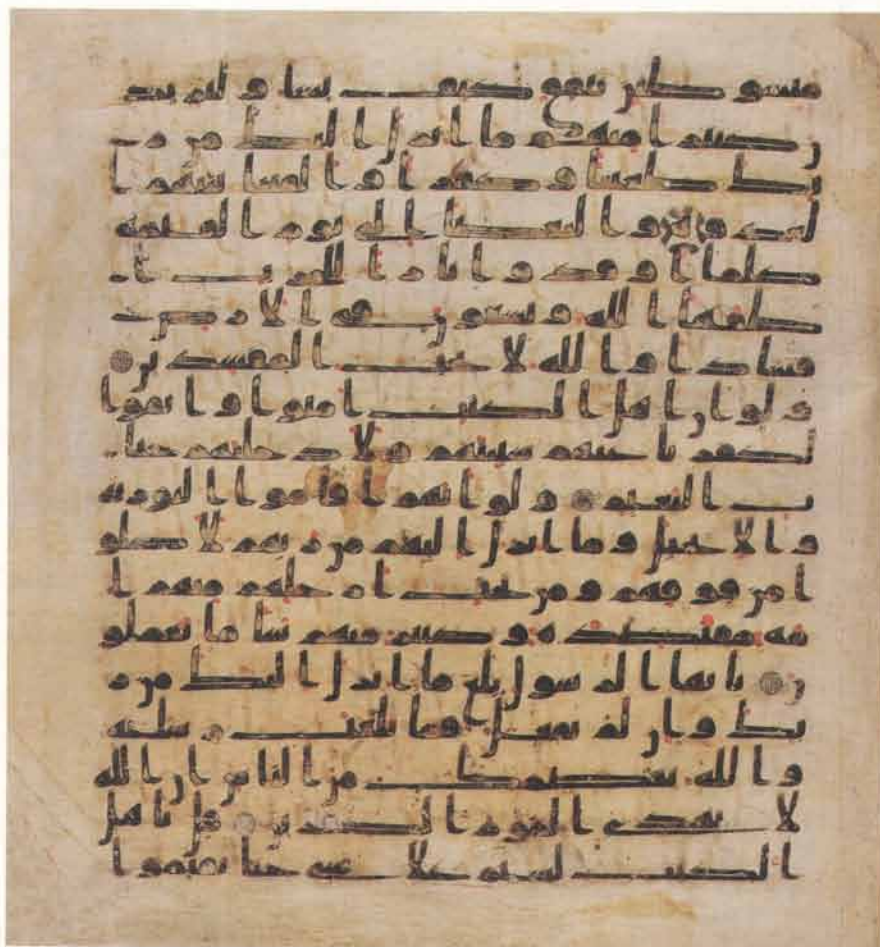 مبسوطتن ينفق كيف يشا و ليزيد
ن كثيرا منهم ما انزل اليك من ر
بك طغينا وكفرا و القينا بينهم ا
لعدوة و البغضا الى يوم القيمه
كلما اوقدوا نارا للحرب ا
طفاها الله ويسعون في الارض
فسادا والله لا يحب المفسدين
ولو ان اهل الكتب امنوا واتقوا
لكفرنا عنهم سيتهم ولادخلنهم جنـ
ـت النعيم ولو انهم اقاموا التوريه
والانجيل وما انزل اليهم من ربهم لاكلو
ا من فوقهم ومن تحت ارجلهم منهم ا
مه مقتصده وكثير منهم سا ما يعملو
ن يايها الرسول بلغ ما انزل اليك من ر
بك وان لم تفعل فما بلغت رسلته
والله يعصمك من الناس ان الله
لا يهدي القوم الكفرين قل ياهل
الكتب لستم على شي حتى تقيموا